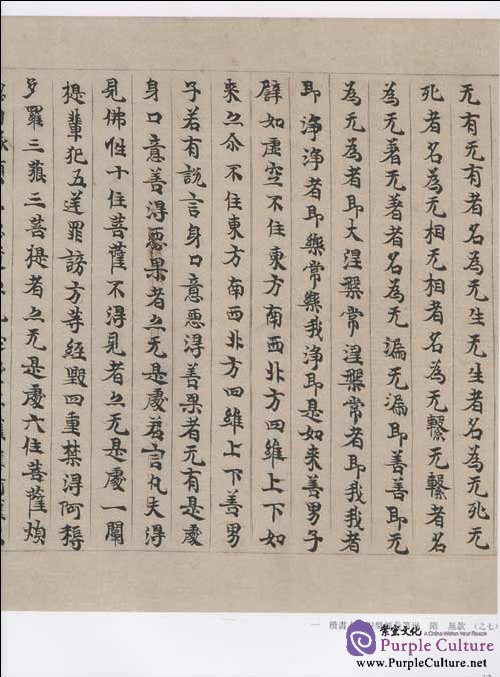 无有无有者名為无生无生者名為无死无
死者名為无相无相者名為无繫无繫者名
為无著无著者名為无漏无漏即善善即无
為无為者即大涅槃常涅槃常者即我我者
即淨淨者即樂常樂我淨即是如来善男子
譬如虛空不住東方南西北方四維上下如
来亦尒不住東方南西北方四維上下善男
子若有說言身口意惡得善果者无有是處
身口意善得惡果者亦无是處若言凡夫得
見佛性十住菩薩不得見者亦无是處一闡
提輩犯五逆罪謗方等經毀四重禁得阿耨
多羅三藐三菩提者亦无是處六住菩薩煩
一 楷書 隋 無款 (之七)
文化
Purple Culture
www.PurpleCulture.net